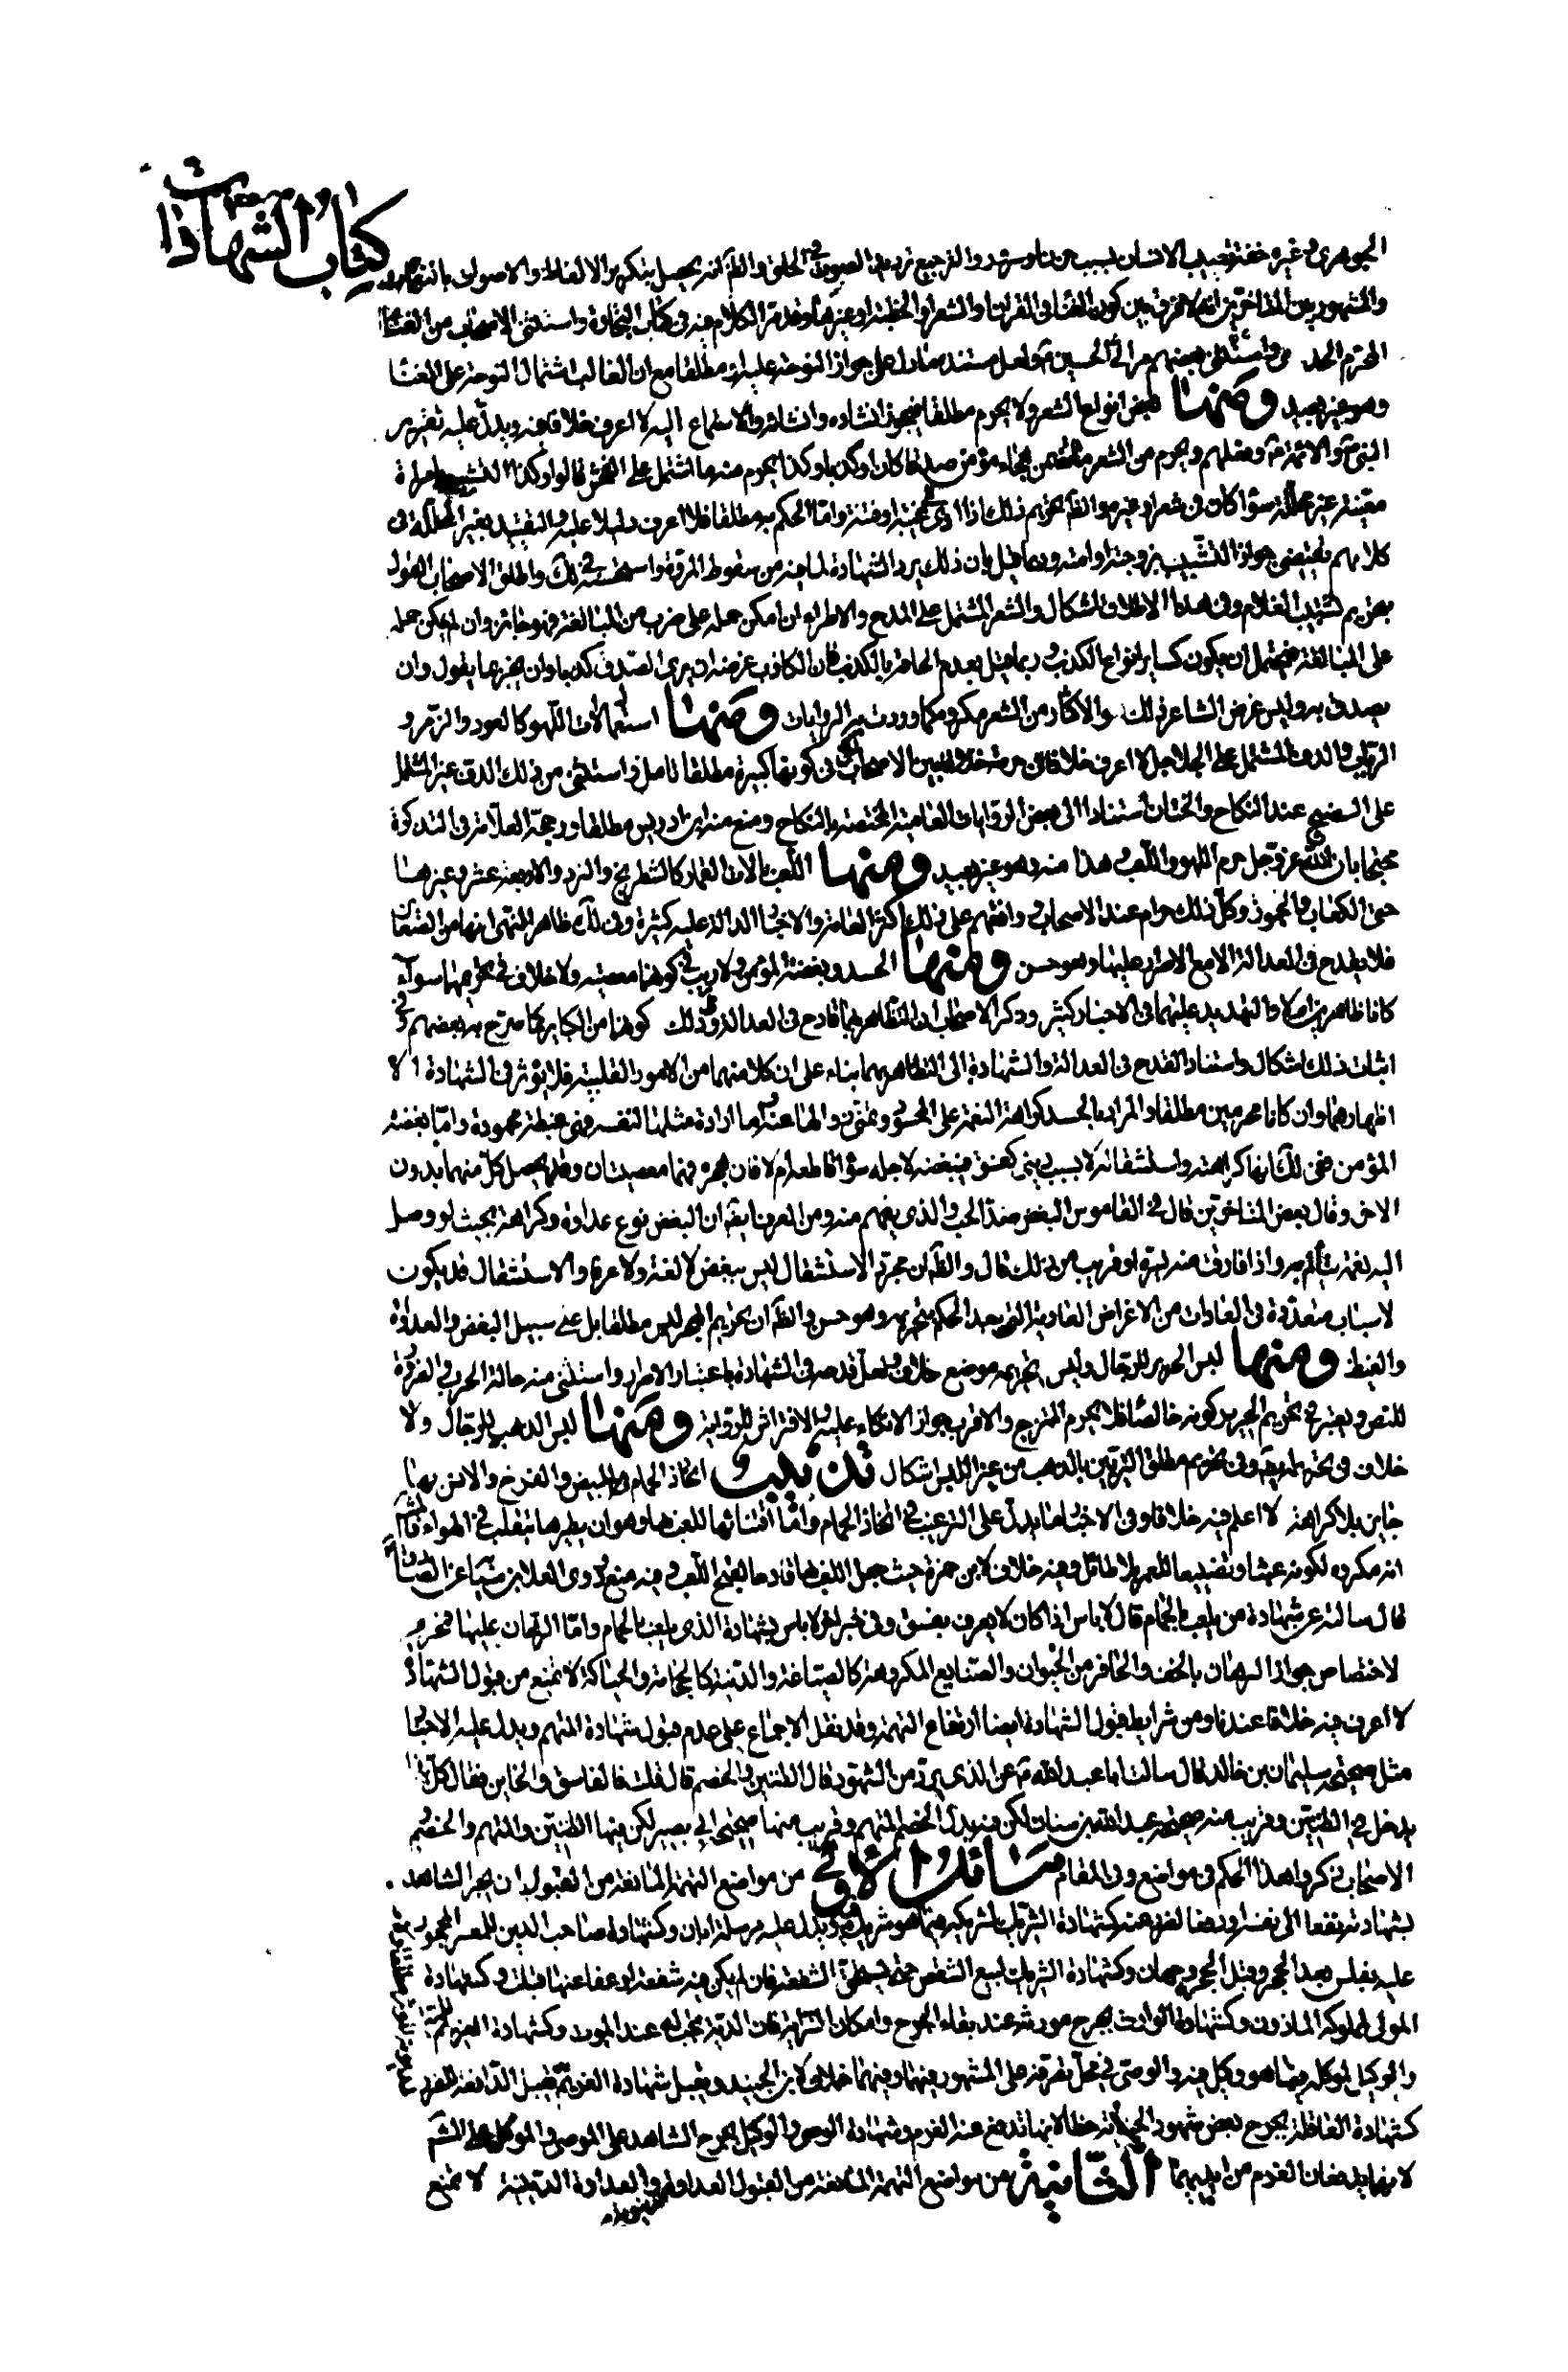 كتاب الشهادات
الجوهري وغيره خفة تصيب الانسان بسبب حزن او سرور والترجيع ترديد الصوت في الحلق والظ انه يحصل بتكرير الالفاظ والاصوات بالنغمات
والمشهور بين المتاخرين انه لا فرق بين كون الغنا في القران او الشعر او الخطبة او غيرها وقد مر الكلام فيه في كتاب التجارة واستثنى الاصحاب من الغنا
المحرم الحداء واستثنى بعضهم مراثي الحسين ع ولعل مستنده ما دل على جواز النوحة عليه مطلقا مع ان الغالب اشتمال النوحة على الغنا
وهو غير بعيد ومنها بعض انواع الشعر ولا يحرم مطلقا فيجوز انشاده وانشاؤه والاستماع اليه لا اعرف خلافا فيه ويدل عليه تقرير
النبي ص والائمة ع وفعلهم ويحرم من الشعر ما تضمن هجاء مؤمن صدقا كان او كذبا وكذا يحرم منه ما اشتمل على الفحش قالوا وكذا التشبيب بامراة
معينة غير محللة سواء كان في شعر او غيره والظ تحريم ذلك اذا ادى الى غيبة او فتنة واما الحكم به مطلقا فلا اعرف دليلا عليه والتقييد بغير المحللة في
كلامهم يقتضي جواز التشبيب بزوجته او امته وربما قيل بان ذلك يرد الشهادة لما فيه من سقوط المروة واستحسنه في لك واطلق الاصحاب القول
بتحريم تشبيب الغلام وفي هذا الاطلاق اشكال والشعر المشتمل على المدح والاطراء ان امكن حمله على ضرب من المبالغة فهو جائز وان لم يمكن حمله
على المبالغة فيحتمل ان يكون كساير انواع الكذب وربما قيل بعدم الحاقه بالكذب لان الكاذب غرضه ان يرى الصدق كذبا وان يخبر بما يقول وان
يصدق به وليس غرض الشاعر ذلك والاكثار من الشعر مكروه كما وردت به الروايات ومنها استعمال الات اللهو كالعود والزمر و
الرباب والدف المشتمل على الجلاجل لا اعرف خلافا في حرمته خلاف بين الاصحاب لكن في كونها كبيرة مطلقا تامل واستثنى من ذلك الدف غير المشتمل
على الصنج عند النكاح والختان استنادا الى بعض الروايات العامية المختصة بالنكاح ومنع منه ابن ادريس مطلقا ورجحه العلامة في التذكرة
محتجا بان الله عز وجل حرم اللهو واللعب وهذا منه وهو غير بعيد ومنها اللعب بالات القمار كالشطرنج والنرد والاربعة عشر وغيرها
حتى الكعاب والجوز وكل ذلك حرام عند الاصحاب ووافقهم على ذلك اكثر العامة والاخبار الدالة عليه كثيرة وفي لك ظاهر النهي انها من الصغائر
فلا يقدح في العدالة الا مع الاصرار عليها وهو حسن ومنها الحسد وبغضة المؤمن ولا ريب في كونهما معصية ولا خلاف في تحريمهما سواء
كانا ظاهرين ام لا والتهديد عليهما في الاخبار كثير وذكر الاصحاب ان التظاهر بهما قادح في العدالة وذلك كونهما من الكباير كما صرح به بعضهم وفي
اثبات ذلك اشكال واستناد القدح في العدالة والشهادة الى التظاهر بهما بناء على ان كلا منهما من الامور القلبية فلا يؤثر في الشهادة الا
اظهارهما وان كانا محرمين مطلقا والمراد بالحسد كراهة النعمة على المحسود وتمني زوالها عنه اما ارادة مثلها لنفسه فهي غبطة محمودة واما بغضة
المؤمن ففي لك انها كراهته واستثقاله لا بسبب ديني كفسق فيبغضه لاجله سواء قاطعه ام لا فان هجره فهما معصيتان وقد يحصل كل منهما بدون
الاخر وقال بعض المتاخرين قال في القاموس البغض ضد الحب والذي يفهم منه ومن العرف ايضا ان البغض نوع عداوة وكراهة بحيث لو وصل
اليه نعمة يتالم به واذا فارق منه يسر او قريب من ذلك قال والظ ان مجرد الاستثقال ليس ببغض لا لغة ولا عرفا والاستثقال قد يكون
لاسباب متعددة في العادات من الاغراض العادية التي يبعد الحكم بتحريمه وهو حسن والظ ان تحريم الهجر ليس مطلقا بل على سبيل البغض والعداوة
والغيظ ومنها لبس الحرير للرجال وليس تحريمه موضع خلاف ولعل قدحه في الشهادة باعتبار الاصرار واستثنى منه حالة الحرب والضرورة
للنص ويعتبر في تحريم الحرير كونه خالصا فلا يحرم الممتزج والاقرب جواز الاتكاء عليه والافتراش للرواية ومنها لبس الذهب للرجال ولا
خلاف في تحريمه وفي تحريم مطلق التزيين بالذهب من غير اللبس اشكال تذنيب اتخاذ الحمام للبيض والفرخ والانس بها
جايز بلا كراهة لا اعلم فيه خلافا وفي الاخبار ما يدل على الترغيب في اتخاذ الحمام واما اقتنائها للعب بها وهو ان يطيرها تتقلب في الهواء
انه مكروه لكونه عبثا وتضييعا للعمر بلا طائل وفيه خلاف لابن حمزة حيث جعل اللعب بها قادحا لقبح اللعب وفيه منع روى العلا بن سيابة عن الصادق ع
قال سالته عن شهادة من يلعب بالحمام قال لا باس اذا كان لا يعرف بفسق وفي خبر اخر لا باس بشهادة الذي يلعب بالحمام واما الرهان عليها فمحرم
لاختصاص جواز الرهان بالخف والحافر من الحيوان والصنايع المكروهة كالصياغة والدنية كالحجامة والحياكة لا تمنع من قبول الشهادة
لا اعرف فيه خلافا عندنا ومن شرايط قبول الشهادة ايضا ارتفاع التهمة وقد نقل الاجماع على عدم قبول شهادة المتهم ويدل عليه الاخبار
مثل صحيحة سليمان بن خالد قال سالت ابا عبد الله ع عن الذي يرد من الشهود قال الظنين والخصم قال قلت فالفاسق والخاين فقال كل هذا
يدخل في الظنين وقريب منه صحيحة عبد الله بن سنان لكن فيه بدل الخصم المتهم وقريب منها صحيحة ابي بصير لكن فيها الظنين والمتهم والخصم
الاصحاب ذكروا هذا الحكم في مواضع وفي المقام مسائل الاولى من مواضع التهمة المانعة من القبول ان يجر الشاهد
بشهادته نفعا الى نفسه او يدفع ضررا عنه كشهادة الشريك لشريكه فيما هو شريك فيه ويدل عليه مرسلة ابان وكشهادة صاحب الدين للمعسر المحجور
عليه بفلس بعد الحجر وقبل الحجر وجهان وكشهادة الشريك لبيع الشقص حتى يستحق الشفعة فان لم يكن فيه شفعة او عفا عنها قبلت وكشهادة
المولى لمملوكه الماذون وكشهادة الوارث بجرح مورثه عند بقاء الجرح وامكان السراية فان الدية يجب له عند الموت وكشهادة الغريم للميت
والوكيل لموكله فيما هو وكيل فيه والوصي في محل تصرفه على المشهور فيهما وفيهما خلاف لابن الجنيد ويقبل شهادة
كشهادة العاقلة بجرح بعض شهود الجناية خطا لانها تدفع عنه الغرم وشهادة الوصي والوكيل بجرح الشاهد على الموصي والموكل
لانهما يدفعان الغرم من ايديهما الثانية من مواضع التهمة المانعة من القبول العداوة والعداوة الدينية لا تمنع